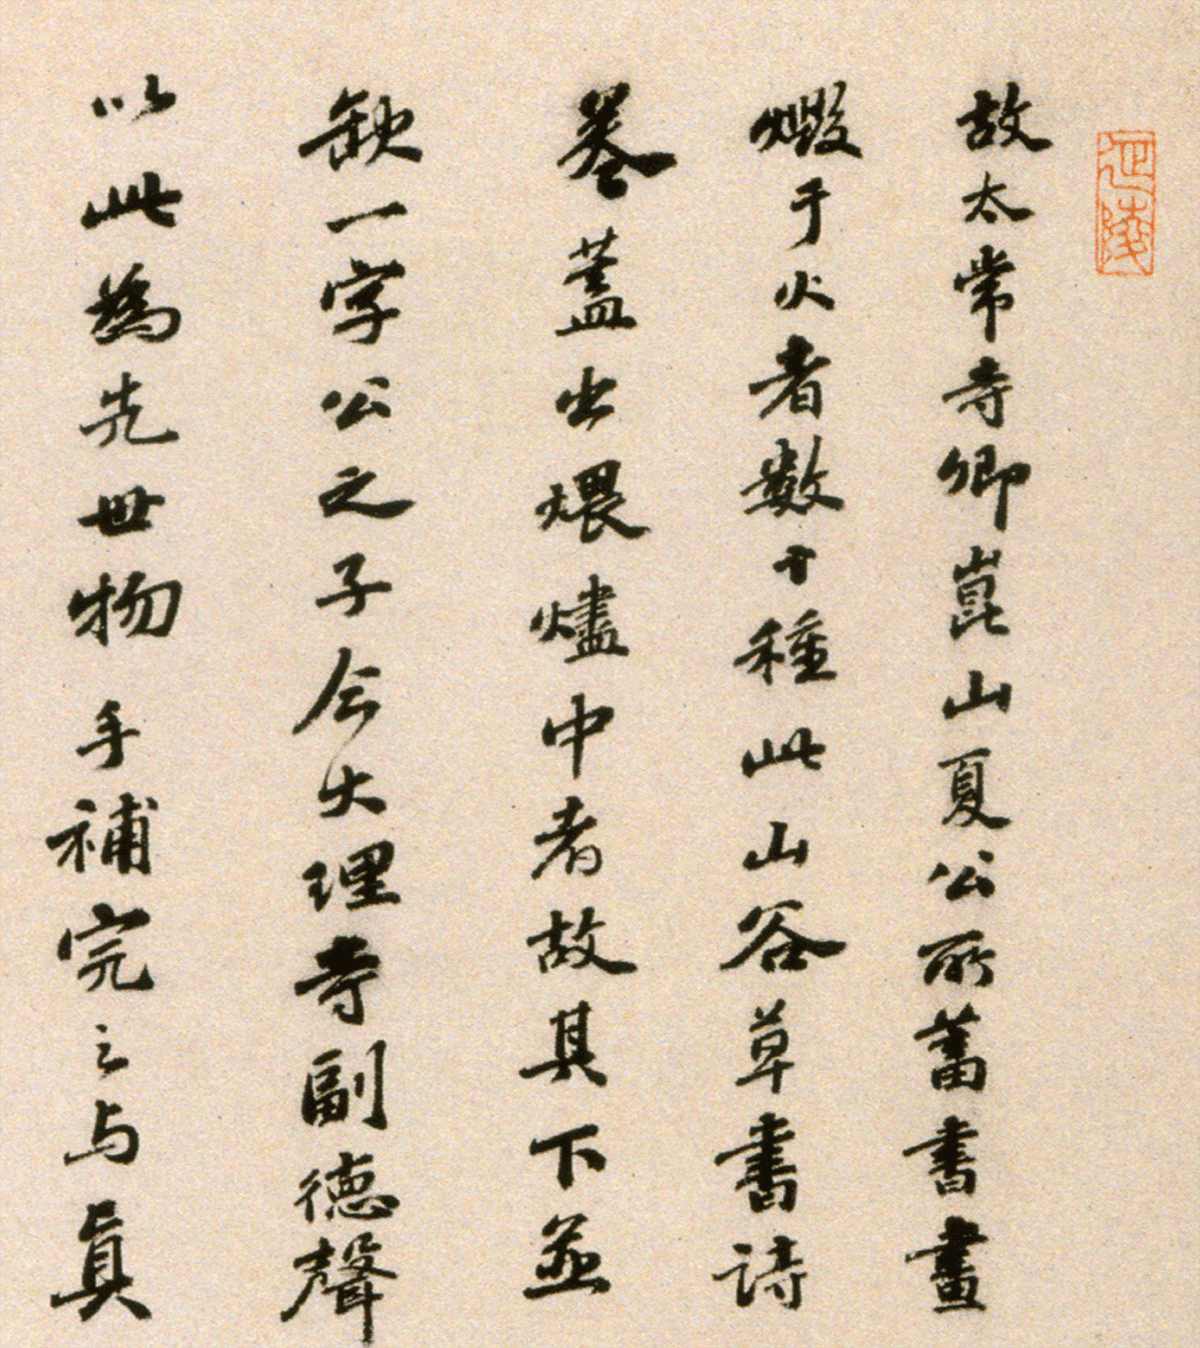 延陵
故太常寺卿崑山夏公所蓄書畫
燬于火者數十種此山谷草書詩
卷蓋出煨燼中者故其下並
缺一字公之子今大理寺副德聲
以此為先世物手補完之与眞